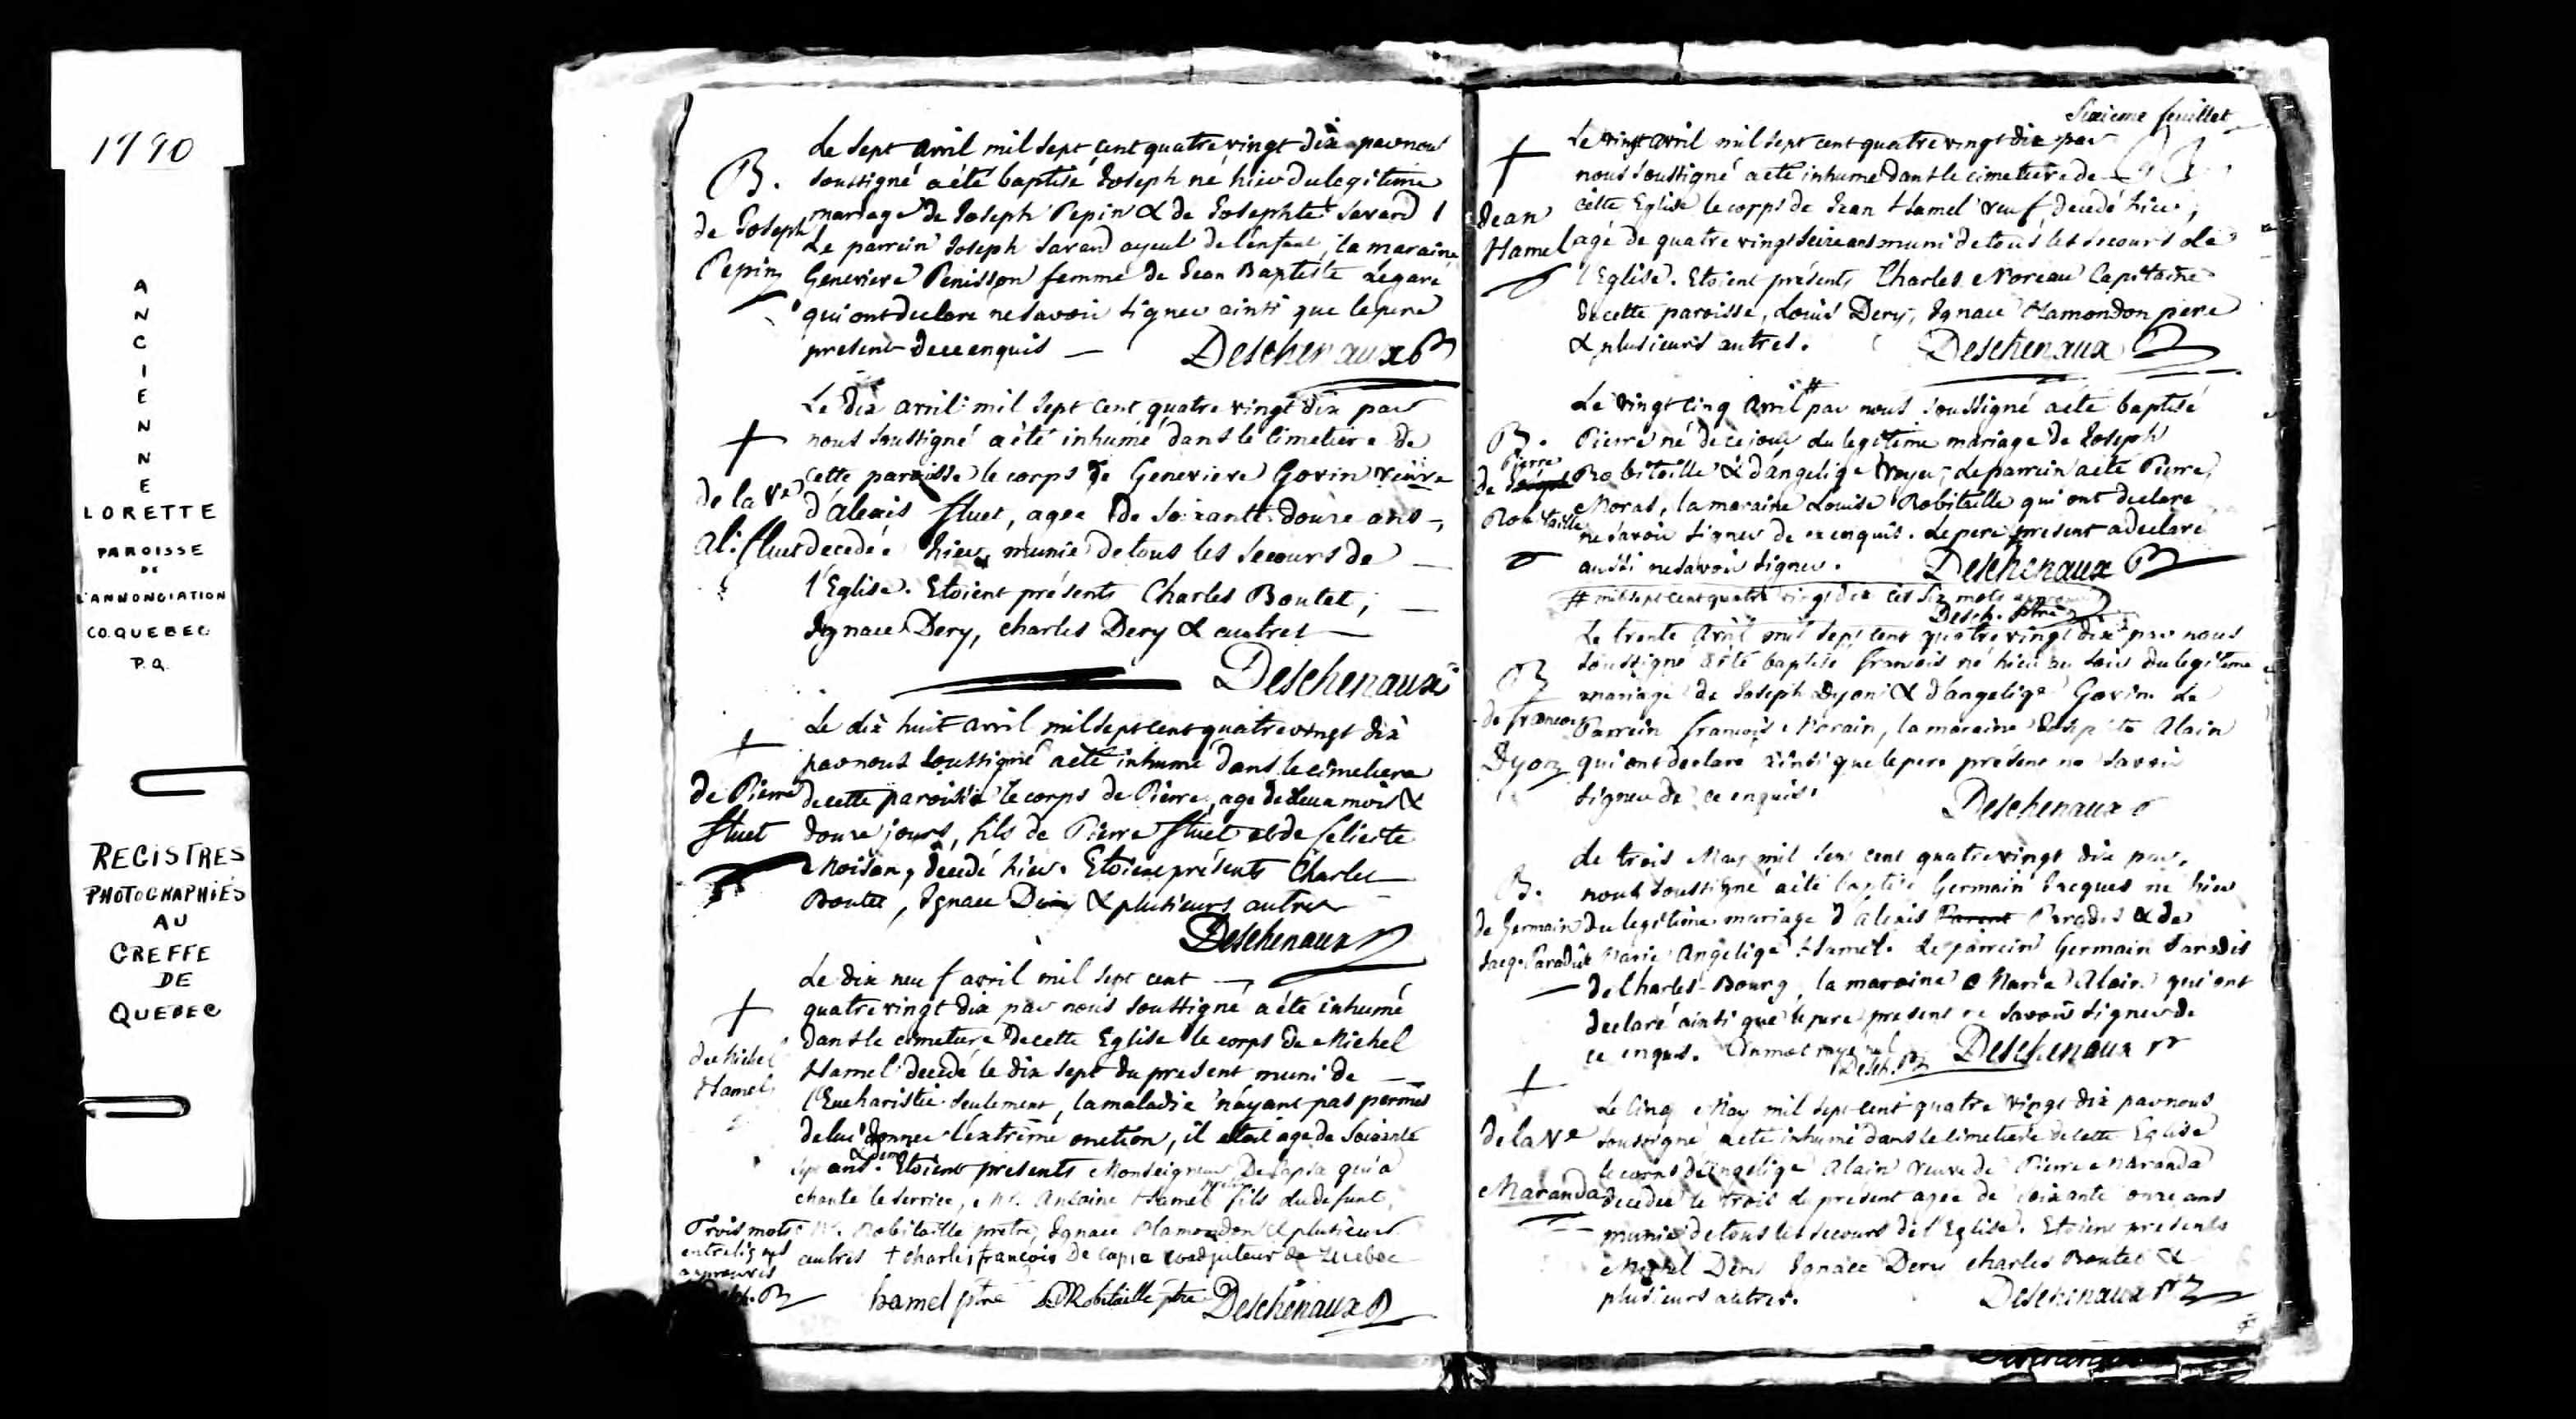 1790
ANCIENNE
LORETTE
PAROISSE
DE
L'ANNONCIATION
CO. QUEBEC
P.Q.
REGISTRES
PHOTOGRAPHIÉS
AU
GREFFE
DE
QUEBEC
B.
de Joseph
Pepin
Le sept avril mil sept cent quatre vingt dix par nous
soussigné a été baptisé Joseph né hier du legitime
mariage de Joseph Pepin & de Josephte Savard
Le parrein Joseph Savard ayeul de l'enfant, la maraine
Genevieve Penisson femme de Jean Baptiste Legaré
qui ont declaré ne savoir signer ainsi que le pere
present de ce enquis — Deschenaux
+
de la Ve
Al: fluet
Le dix avril mil sept cent quatre vingt dix par
nous soussigné a été inhumé dans le cimetiere de
cette paroisse le corps de Genevieve Govin veuve
d'alexis fluet, agée de soixante douze ans,
decedée hier munie de tous les secours de
l'Eglise. Etoient présents Charles Boutet,
Ignace Dery, charles Dery & autres
Deschenaux
+
de Pierre
fluet
Le dix huit avril mil sept cent quatre vingt dix
par nous soussigné a été inhumé dans le cimetiere
de cette paroisse le corps de Pierre, age de deux mois &
douze jours, fils de Pierre fluet et de felicite
Moisan, decedé hier. Etoient présents Charles
Boutet, Ignace Dery & plusieurs autres
Deschenaux
+
de Michel
Hamel
Le dix neuf avril mil sept cent
quatre vingt dix par nous soussigné a été inhumé
dans le cimetiere de cette Eglise le corps de Michel
Hamel decedé le dix sept du present muni de
l'Eucharistie seulement, la maladie n'ayant pas permis
de lui donner l'extrême onction, il etoit age de soixante
sept ans & demi. Etoient presents Monseigneur De Capsa qui a
chanté le service, Mr. Antoine Hamel prêtre fils du defunt,
Mr. Robitaille prêtre, Ignace Plamondon & plusieurs
autres + charles françois De Capsa coadjuteur de Quebec
Trois mots
entrelignes
approuvés
Desch.
hamel ptre Robitaille ptre Deschenaux
Sixieme feuillet
+
Jean
Hamel
Le vingt avril mil sept cent quatre vingt dix par
nous soussigné a été inhumé dans le cimetiere de
cette Eglise le corps de Jean Hamel veuf, decedé hier,
agé de quatre vingt seize ans muni de tous les secours de
l'Eglise. Etoient présents Charles Moreau Capitaine
de cette paroisse, Louis Dery, Ignace Plamondon pere
& plusieurs autres. Deschenaux
B.
de Pierre
Robitaille
Le vingt cinq avril # par nous soussigné a été baptisé
Pierre né de ce jour du legitime mariage de Joseph
Robitaille & d'angelige Voyer, Le parrein a été Pierre
Moras, la maraine Louise Robitaille qui ont declaré
ne savoir signer de ce enquis. Le pere present a declaré
aussi ne savoir signer. Deschenaux
# mil sept cent quatre vingt dix ces six mots
Desch. ptre
B
de francois
Dyon
Le trente avril mil sept cent quatre vingt dix par nous
soussigné a été baptisé francois né hier au soir du legitime
mariage de Joseph Dyon & d'angelige Govin. Le
Parrein françois Morain, la maraine Josephte Alain
qui ont declaré ainsi que le pere présent ne savoir
signer de ce enquis. Deschenaux
B.
de Germain
Jacq. Paradis
Le trois May mil sept cent quatre vingt dix par
nous soussigné a été baptisé Germain Jacques né hier
du legitime mariage d'alexis Parent Paradis & de
Marie Angelige Hamel. Le parrein Germain Paradis
de Charles-Bourg, la maraine Marie Alain qui ont
declaré ainsi que le pere present ne savoir signer de
ce enquis. Un mot rayé nul Deschenaux
Desch.
+
de la Ve
Maranda
Le cinq May mil sept cent quatre vingt dix par nous
soussigné a été inhumé dans le cimetiere de cette Eglise
le corps d'Angelige Alain veuve de Pierre Maranda
decedée le trois du présent agée de soixante onze ans
munie de tous les secours de l'Eglise. Etoient présents
Michel Dery Ignace Dery charles Boutet &
plusieurs autres. Deschenaux